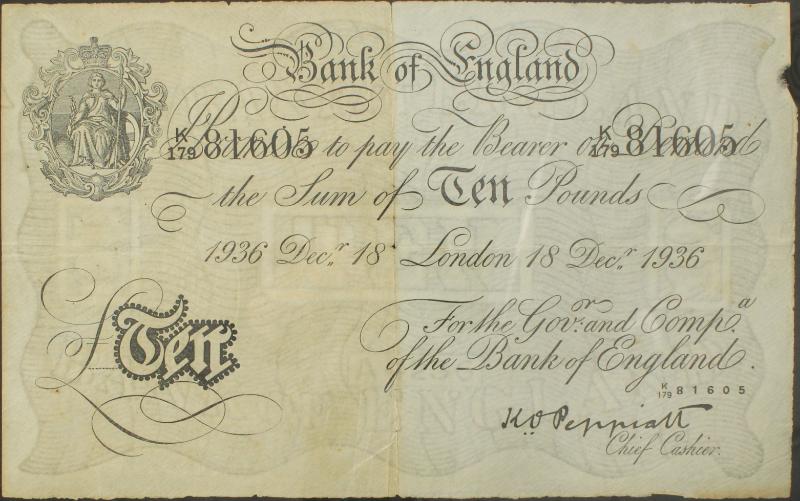 Bank of England
K/179 81605 K/179 81605
I Promise to pay the Bearer on Demand
the Sum of Ten Pounds
1936 Decr. 18 London 18 Decr. 1936
For the Govr. and Compa.
of the Bank of England.
£Ten
K/179 81605
K.O. Peppiatt
Chief Cashier.